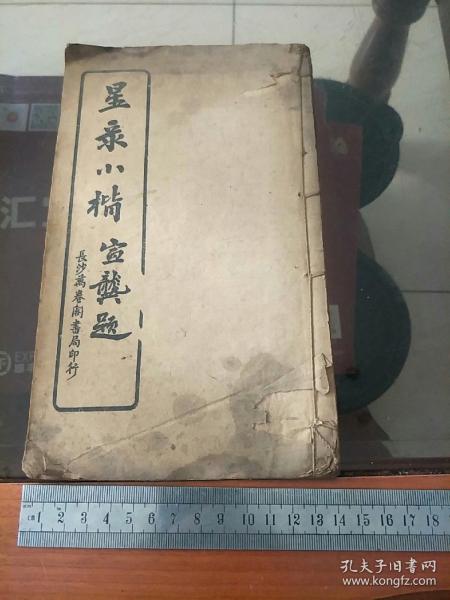 星彔小楷 宣龔題
長沙萬卷閣書局印行
汇
EXP
1 2 3 4 5 6 7 8 9 10 11 12 13 14 15 16 17 18
孔夫子旧书网
www.kongfz.com